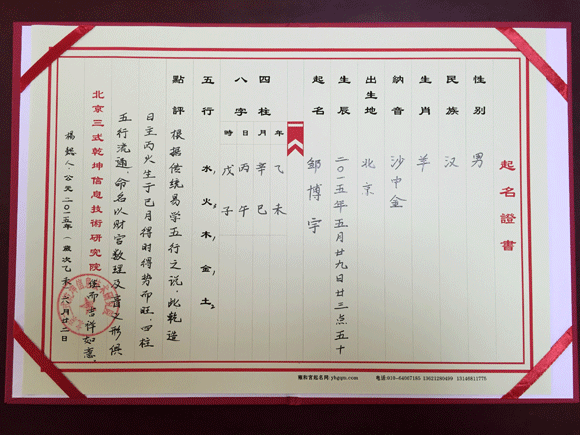 起名證書
性别 男
民族 汉
生肖 羊
納音 沙中金
出生地 北京
生辰 二〇一五年五月廿九日廿三点五十
起名 邹博宇
四柱
八字
年 月 日 時
乙未 辛巳 丙午 戊子
五行 水1 火3 木1 金1 土2
點評 根据传统易学五行之说，此乾造
日主丙火生于巳月得时得势而旺，四柱
五行流通，命名以财官数理及音义形俱
佳而吉祥如意。
北京三式乾坤信息技術研究院
楊 人 公元二〇一五年 歲次乙未 月廿二日
雍和宫起名网:yhgqm.com 电话:010-64067165 13621280439 13146811770